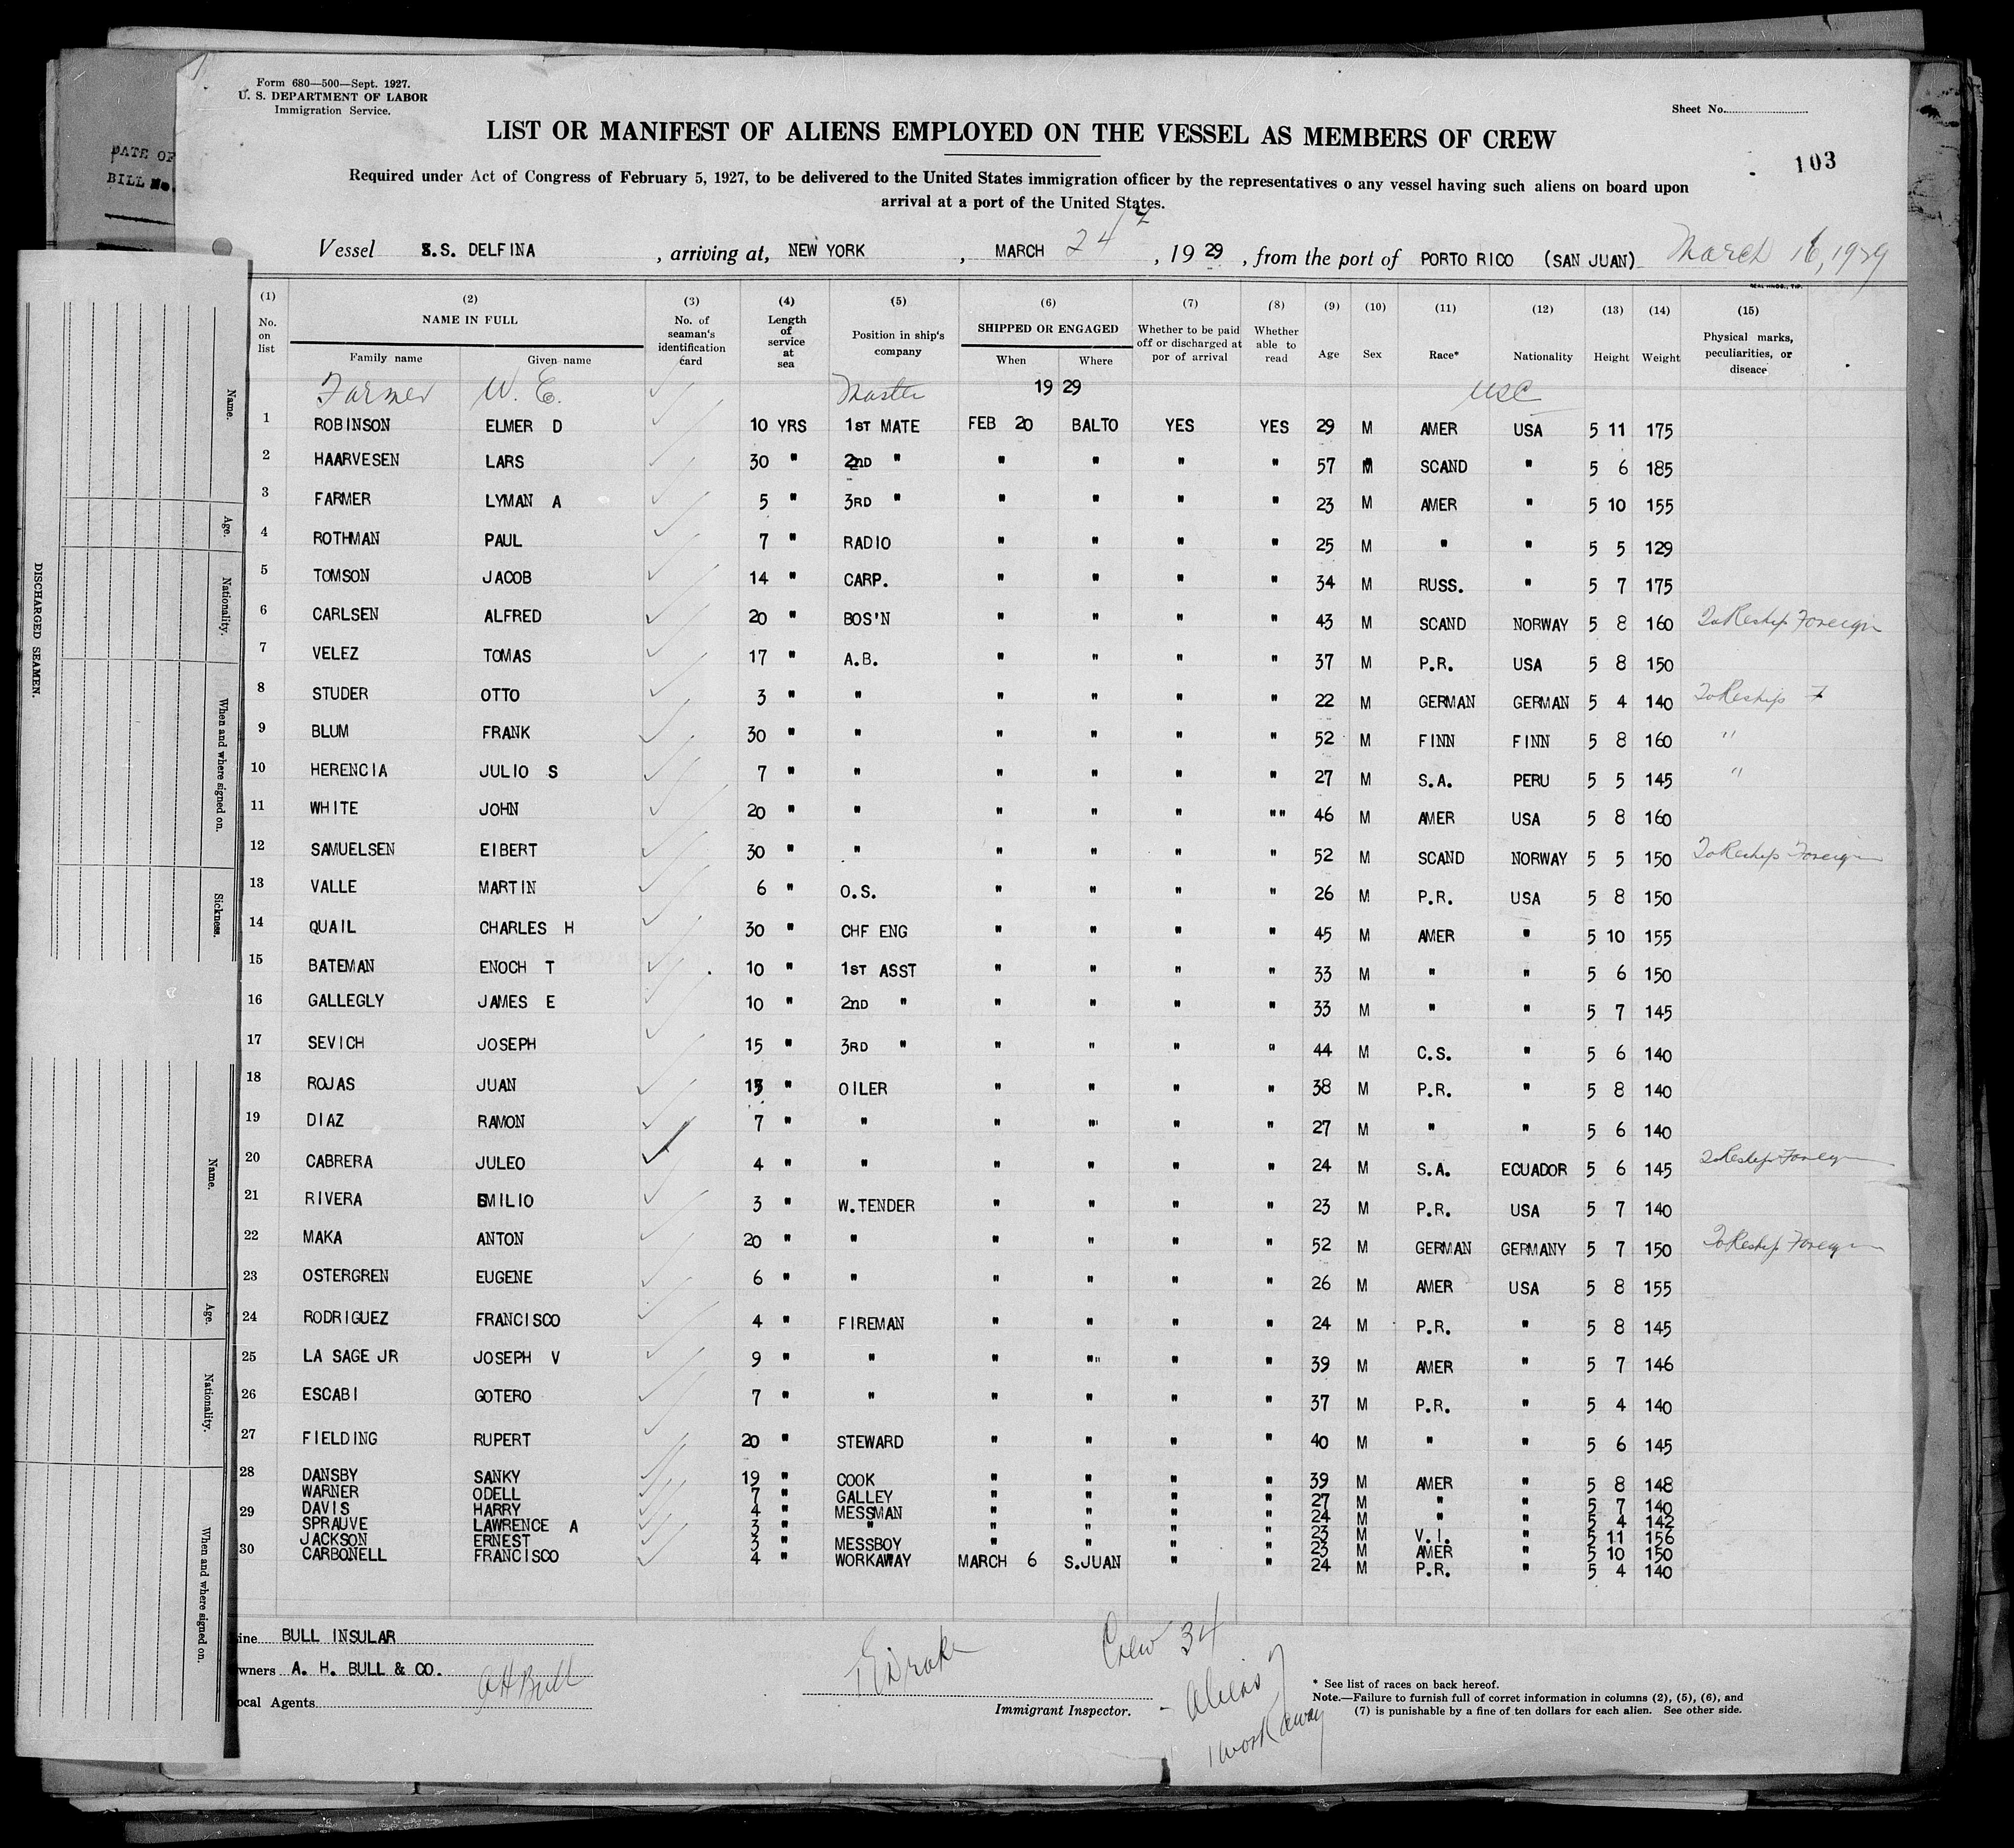 Form 680—500—Sept. 1927.
U. S. DEPARTMENT OF LABOR
Immigration Service.
Sheet No.
LIST OR MANIFEST OF ALIENS EMPLOYED ON THE VESSEL AS MEMBERS OF CREW
103
Required under Act of Congress of February 5, 1927, to be delivered to the United States immigration officer by the representatives o any vessel having such aliens on board upon
arrival at a port of the United States.
DATE OF
BILL No.
Vessel S.S. DELFINA , arriving at, NEW YORK , MARCH 24 , 1929 , from the port of PORTO RICO (SAN JUAN) March 16, 1929
(1) (2) (3) (4) (5) (6) (7) (8) (9) (10) (11) (12) (13) (14) (15)
No. on list NAME IN FULL Family name Given name No. of seaman's identification card Length of service at sea Position in ship's company SHIPPED OR ENGAGED When Where Whether to be paid off or discharged at por of arrival Whether able to read Age Sex Race* Nationality Height Weight Physical marks, peculiarities, or diseace
Farmer W. E. Master 1929 USC
1 ROBINSON ELMER D 10 YRS 1ST MATE FEB 20 BALTO YES YES 29 M AMER USA 5 11 175
2 HAARVESEN LARS 30 " 2nd " " " " " 57 M SCAND " 5 6 185
3 FARMER LYMAN A 5 " 3RD " " " " " 23 M AMER " 5 10 155
4 ROTHMAN PAUL 7 " RADIO " " " " 25 M " " 5 5 129
5 TOMSON JACOB 14 " CARP. " " " " 34 M RUSS. " 5 7 175
6 CARLSEN ALFRED 20 " BOS'N " " " " 43 M SCAND NORWAY 5 8 160 To Reship Foreign
7 VELEZ TOMAS 17 " A.B. " " " " 37 M P.R. USA 5 8 150
8 STUDER OTTO 3 " " " " " " 22 M GERMAN GERMAN 5 4 140 To Reship F
9 BLUM FRANK 30 " " " " " " 52 M FINN FINN 5 8 160 "
10 HERENCIA JULIO S 7 " " " " " " 27 M S.A. PERU 5 5 145 "
11 WHITE JOHN 20 " " " " " "" 46 M AMER USA 5 8 160
12 SAMUELSEN EIBERT 30 " " " " " " 52 M SCAND NORWAY 5 5 150 To Reship Foreign
13 VALLE MARTIN 6 " O.S. " " " " 26 M P.R. USA 5 8 150
14 QUAIL CHARLES H 30 " CHF ENG " " " " 45 M AMER " 5 10 155
15 BATEMAN ENOCH T 10 " 1ST ASST " " " " 33 M " " 5 6 150
16 GALLEGLY JAMES E 10 " 2nd " " " " " 33 M " " 5 7 145
17 SEVICH JOSEPH 15 " 3RD " " " " " 44 M C.S. " 5 6 140
18 ROJAS JUAN " OILER " " " " 38 M P.R. " 5 8 140
19 DIAZ RAMON 7 " " " " " " 27 M " " 5 6 140
20 CABRERA JULEO 4 " " " " " " 24 M S.A. ECUADOR 5 6 145 To Reship Foreign
21 RIVERA EMILIO 3 " W.TENDER " " " " 23 M P.R. USA 5 7 140
22 MAKA ANTON 20 " " " " " " 52 M GERMAN GERMANY 5 7 150 To Reship Foreign
23 OSTERGREN EUGENE 6 " " " " " " 26 M AMER USA 5 8 155
24 RODRIGUEZ FRANCISCO 4 " FIREMAN " " " " 24 M P.R. " 5 8 145
25 LA SAGE JR JOSEPH V 9 " " " " " " 39 M AMER " 5 7 146
26 ESCABI GOTERO 7 " " " " " " 37 M P.R. " 5 4 140
27 FIELDING RUPERT 20 " STEWARD " " " " 40 M " " 5 6 145
28 DANSBY SANKY 19 " COOK " " " " 39 M AMER " 5 8 148
WARNER ODELL 7 " GALLEY " " " " 27 M " " 5 7 140
29 DAVIS HARRY 4 " MESSMAN " " " " 24 M " " 5 4 142
SPRAUVE LAWRENCE A 3 " " " " " " 23 M V.I. " 5 11 156
JACKSON ERNEST 3 " MESSBOY " " " " 23 M AMER " 5 10 150
30 CARBONELL FRANCISCO 4 " WORKAWAY MARCH 6 S.JUAN " " 24 M P.R. " 5 4 140
ine BULL INSULAR
wners A. H. BULL & CO. A H Bull
ocal Agents
Drake
Immigrant Inspector.
Crew 34
- Aliens 7
1 workaway
* See list of races on back hereof.
Note.—Failure to furnish full of corret information in columns (2), (5), (6), and
(7) is punishable by a fine of ten dollars for each alien. See other side.
DISCHARGED SEAMEN.
Name.
Age.
Nationality.
When and where signed on.
Sickness.
Name.
Age.
Nationality.
When and where signed on.